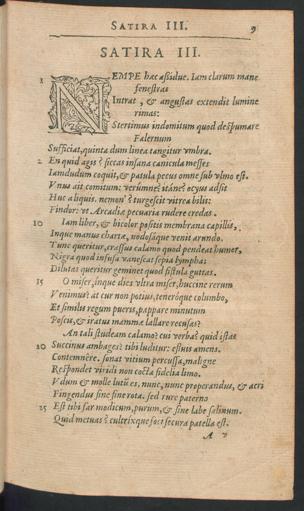 SATIRA III. 9
SATIRA III.
1 NEMPE hæc aßidue. Iam clarum mane
fenestras
Intrat, & angustas extendit lumine
rimas:
Stertimus indomitum quod despumare
Falernum
Sufficiat, quinta dum linea tangitur vmbra.
2 En quid agis? siccas insana canicula messes
Iamdudum coquit, & patula pecus omne sub vlmo est.
Vnus ait comitum: verumne? itáne? ocyus adsit
Huc aliquis. nemon'? turgescit vitrea bilis:
Findor: vt Arcadiæ pecuaria rudere credas.
10 Iam liber, & bicolor positis membrana capillis,
Inque manus chartæ, nodosáque venit arundo.
Tunc queritur, crassus calamo quod pendeat humor,
Nigra quod infusa vanescat sepia lympha:
Dilutas queritur geminet quod fistula guttas.
15 O miser, inque dies vltra miser, huccine rerum
Venimus? at cur non potius, teneróque columbo,
Et similis regum pueris, pappare minutum
Poscis, & iratus mammæ lallare recusas?
An tali studeam calamo? cui verba? quid istas
20 Succinis ambages? tibi luditur: effluis amens.
Contemnêre. sonat vitium percussa, maligne
Respondet viridi non cocta fidelia limo.
Vdum & molle lutũ es. nunc, nunc properandus, & acri
Fingendus sine fine rota. sed rure paterno
25 Est tibi far modicum, purum, & sine labe salinum.
Quid metuas? cultrixque foci secura patella est.
A v